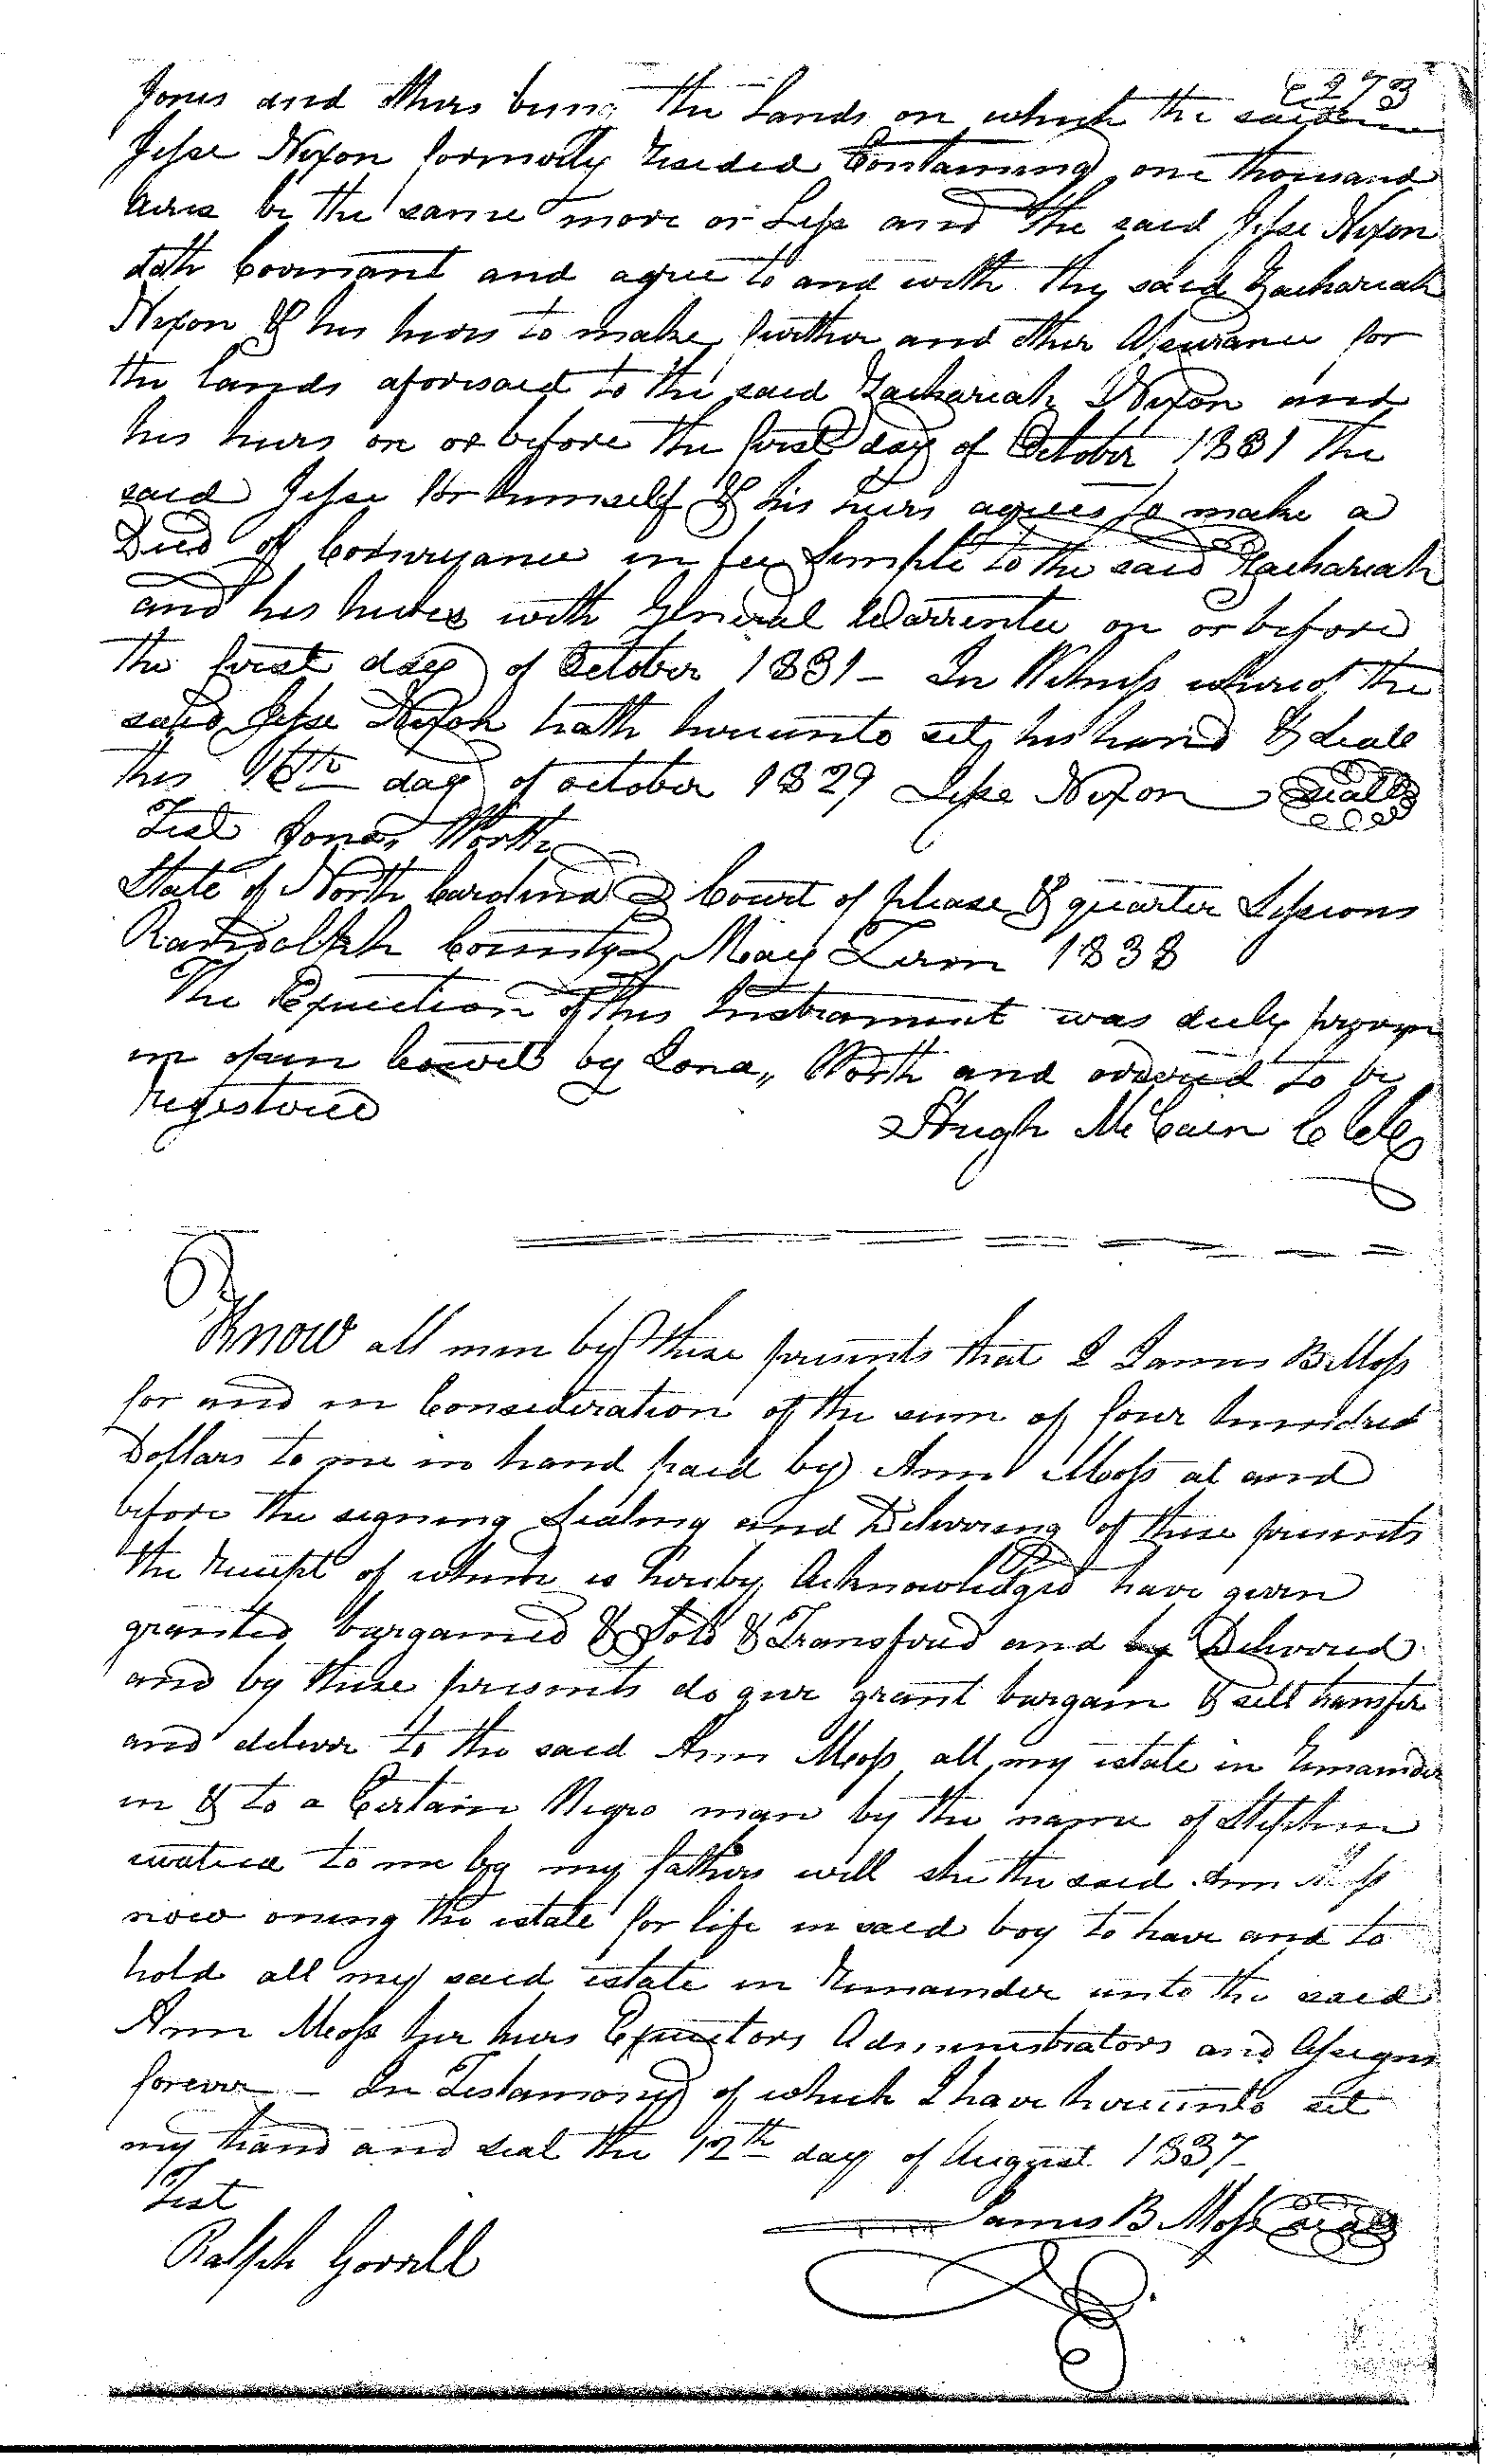 273
Jones and others being the Lands on which the said
Jesse Nixon formerly Resided Containing one thousand
acres be the same more or Less and the said Jesse Nixon
doth Covenant and agree to and with the said Zachariah
Nixon & his heirs to make further and other Assurance for
the lands aforesaid to the said Zachariah Nixon and
his heirs on or before the first day of October 1831 the
said Jesse for himself & his heirs agrees to make a
Deed of Conveyance in fee Simple to the said Zachariah
and his heires with General Warrentee on or before
the first day of October 1831 - In Witness whereof the
said Jesse Nixon hath hereunto set his hand & Seale
this 16th day of october 1829 Jesse Nixon Seal
Test Jona, Worth
State of North Carolina Court of please & quarter Sessions
Randolph County May Term 1838
The Execution of this Instrument was duly proven
in open Court by Jona,, Worth and ordered to be
registered
Hugh McCain C Clk
Know all men by these presents that I James B. Moss
for and in Consideration of the sum of four hundred
Dollars to me in hand paid by Ann Moss at and
before the signing Sealing and Delivering of these presents
the receipt of which is hereby Acknowledged have given
granted bargained & Sold & Transfered and by Delivered
and by these presents do give grant bargain & sell transfer
and deliver to the said Ann Moss all my estate in remainder
in & to a Certain Negro man by the name of Stephen
to me by my fathers will she the said Ann Moss
now oning the estate for life in said boy to have and to
hold all my said estate in Remainder unto the said
Ann Moss her heirs Executors Administrators and Assigns
forever - In Testamony of which I have hereunto set
my hand and seal the 12th day of August 1837
Test
James B. Moss seal
Ralph Gorrell